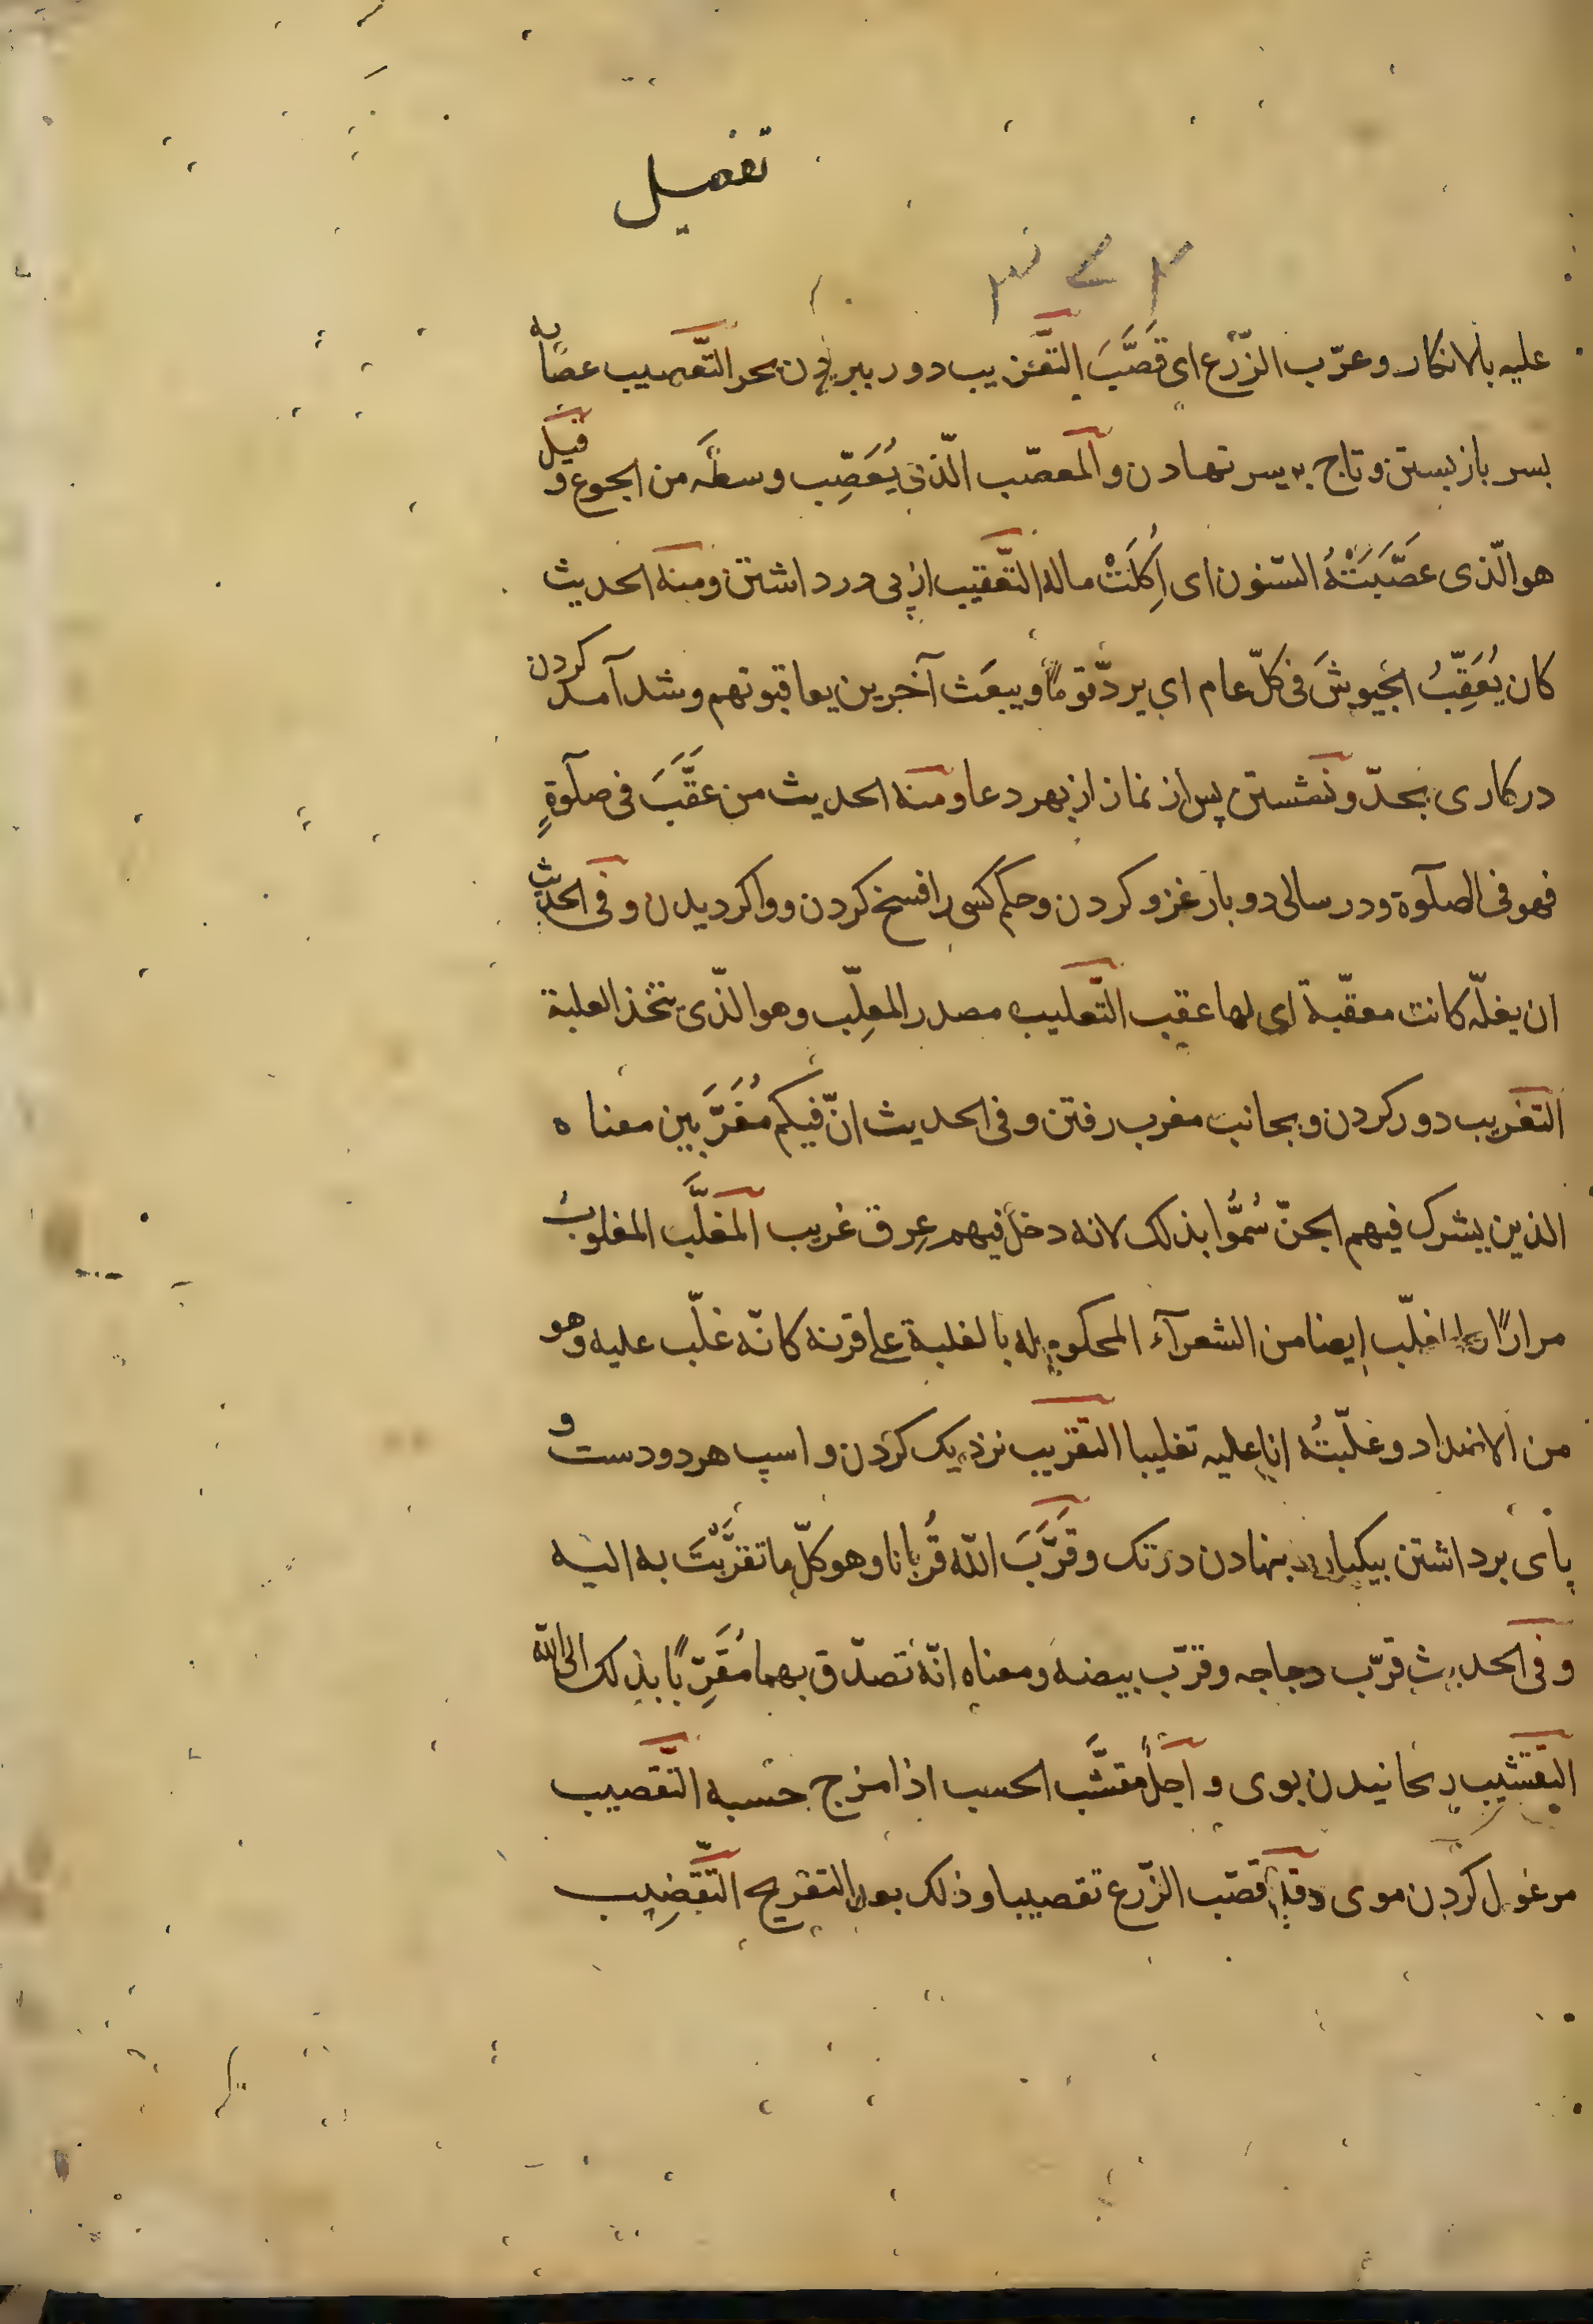 تفعيل
٣٧٢
عليه بالانكار وعرّب الزّرع اى قَصَّبَ التَّعزيب دور ببريدن سحر التَّعصيب عصابه
بسر باز بستن وتاج بر سر نهادن والمعصّب الّذى يُعَصِّب وسطَه من الجوع وقيل
هو الّذى عَصَّبَتْهُ السّنون اى اَكَلَتْ ماله التَّعقيب از پى در داشتن ومنه الحديث
كان يُعَقِّبُ الجيوشَ فى كلّ عام اى يردّ قومًا ويبعَث آخرين يعاقبونهم وشد آمد كردن
در كارى بجدّ ونشستن پس از نماز از بهر دعا ومنه الحديث من عَقَّبَ فى صلوةٍ
فهو فى الصلوة ودر سالى دو بار غزو كردن وحكم كسى را فسخ كردن ووا گرديدن وفى الحديث
ان نعله كانت معقّبة اى لها عقب التّعليب مصدر المعلِّب وهو الّذى يتّخذ العلبة
التغريب دور كردن وبجانب مغرب رفتن وفى الحديث انّ فيكم مُغَرَّبين معناه
الذين يشرك فيهم الجنّ سُمّوا بذلك لانه دخل فيهم عِرق غريب المغلَّب المغلوبُ
مرارًا والمغلّب ايضا من الشعرآء المحكوم له بالغلبة على قرنه كانّه غلّب عليه وهو
من الاضداد وغلّبتُه انا عليه تغليبا التقريب نزديك كردن واسپ هر دو دست و
پاى برداشتن بيكبار و بنهادن در تك وقَرَّبَ اللّه قُربانا وهو كلّ ما تقرَّبْتَ به اليه
وفى الحديث قرّب دجاجه وقرّب بيضه ومعناه انّه تصدّق بهما مُقَرِّبًا بذلك الى اللّه
التقشيب رنجانيدن بوى ورجلٌ مقشَّب الحسب اذا مزج حسبه التَّقصيب
مرغول كردن موى وقد قصّب الزّرع تقصيبا وذلك بعد التفريخ التَّقضِيب